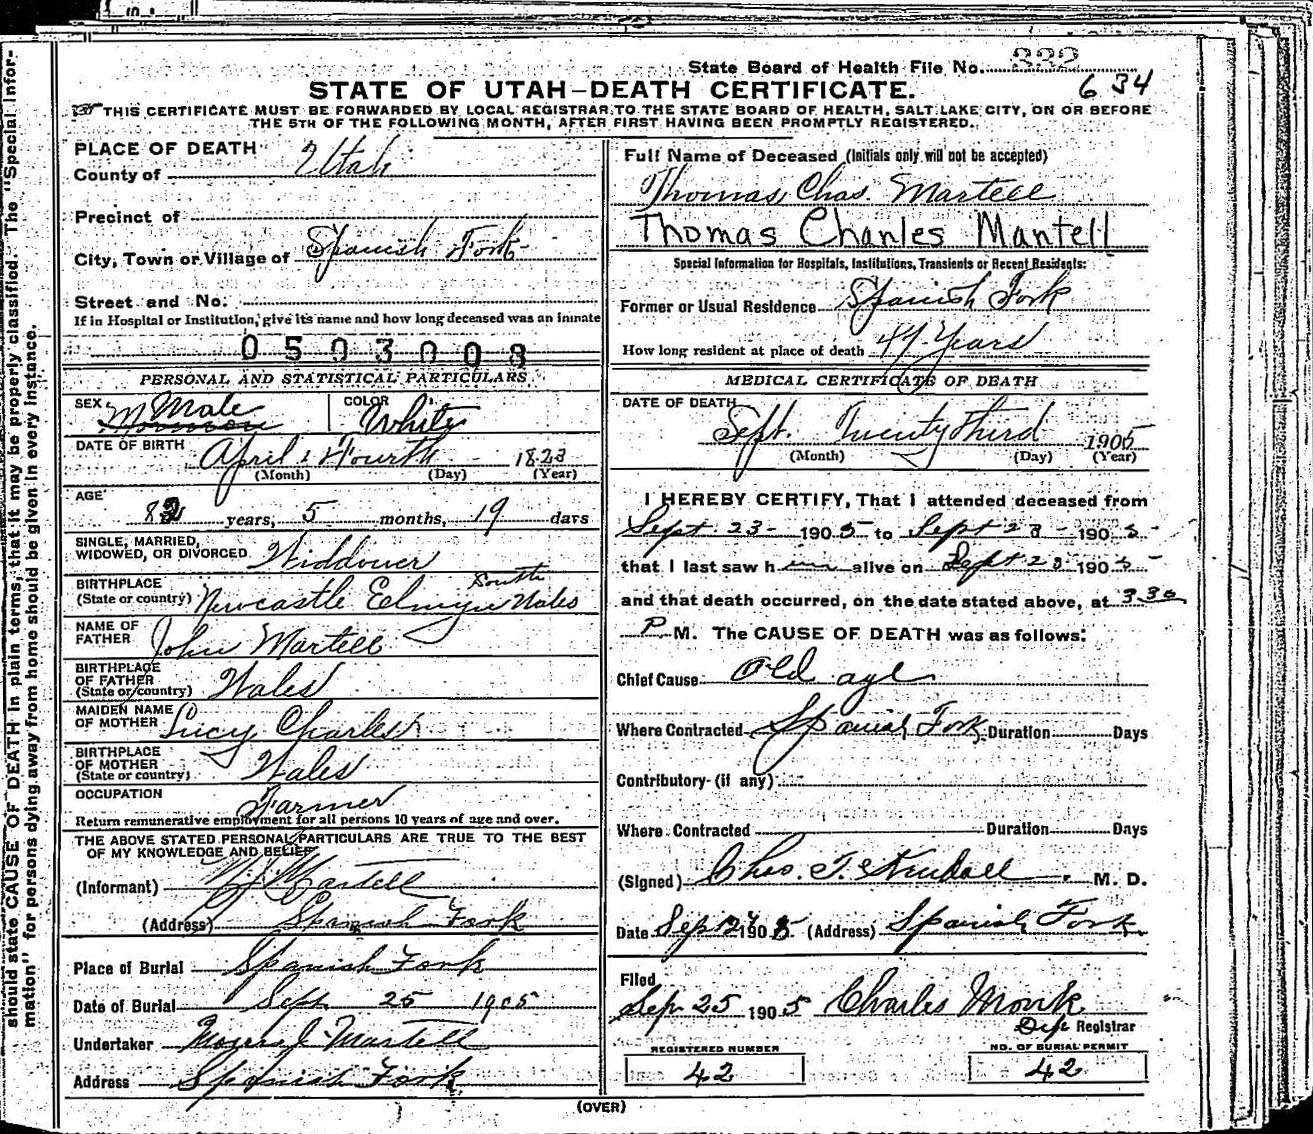 State Board of Health File No. 332
634
STATE OF UTAH—DEATH CERTIFICATE.
THIS CERTIFICATE MUST BE FORWARDED BY LOCAL REGISTRAR TO THE STATE BOARD OF HEALTH, SALT LAKE CITY, ON OR BEFORE
THE 5TH OF THE FOLLOWING MONTH, AFTER FIRST HAVING BEEN PROMPTLY REGISTERED.
should state CAUSE OF DEATH in plain terms, that it may be properly classified. The "Special Infor-
mation" for persons dying away from home should be given in every instance.
PLACE OF DEATH
County of Utah
Precinct of
City, Town or Village of Spanish Fork
Street and No.
If in Hospital or Institution, give its name and how long deceased was an inmate
0503008
PERSONAL AND STATISTICAL PARTICULARS
SEX Male
COLOR White
DATE OF BIRTH April Fourth 1823
(Month) (Day) (Year)
AGE
82 years, 5 months, 19 days
SINGLE, MARRIED,
WIDOWED, OR DIVORCED Widdower
BIRTHPLACE
(State or country) Newcastle Elmyn South Wales
NAME OF
FATHER John Martell
BIRTHPLACE
OF FATHER
(State or country) Wales
MAIDEN NAME
OF MOTHER Lucy Charles
BIRTHPLACE
OF MOTHER
(State or country) Wales
OCCUPATION Farmer
Return remunerative employment for all persons 10 years of age and over.
THE ABOVE STATED PERSONAL PARTICULARS ARE TRUE TO THE BEST
OF MY KNOWLEDGE AND BELIEF
(Informant) Martell
(Address) Spanish Fork
Place of Burial Spanish Fork
Date of Burial Sept 25 1905
Undertaker Moses J. Martell
Address Spanish Fork
Full Name of Deceased (Initials only will not be accepted)
Thomas Chas. Martell
Thomas Charles Martell
Special Information for Hospitals, Institutions, Transients or Recent Residents:
Former or Usual Residence Spanish Fork
How long resident at place of death 47 Years
MEDICAL CERTIFICATE OF DEATH
DATE OF DEATH
Sept. Twenty Third 1905
(Month) (Day) (Year)
I HEREBY CERTIFY, That I attended deceased from
Sept 23 1905 to Sept 23 1905
that I last saw him alive on Sept 23 1905
and that death occurred, on the date stated above, at 330
P M. The CAUSE OF DEATH was as follows:
Chief Cause Old age
Where Contracted Spanish Fork Duration Days
Contributory (if any)
Where Contracted Duration Days
(Signed) Chas. M. D.
Date Sep 1905 (Address) Spanish Fork
Filed
Sep 25 1905 Charles Monk
Dep Registrar
REGISTERED NUMBER
42
NO. OF BURIAL PERMIT
42
(OVER)